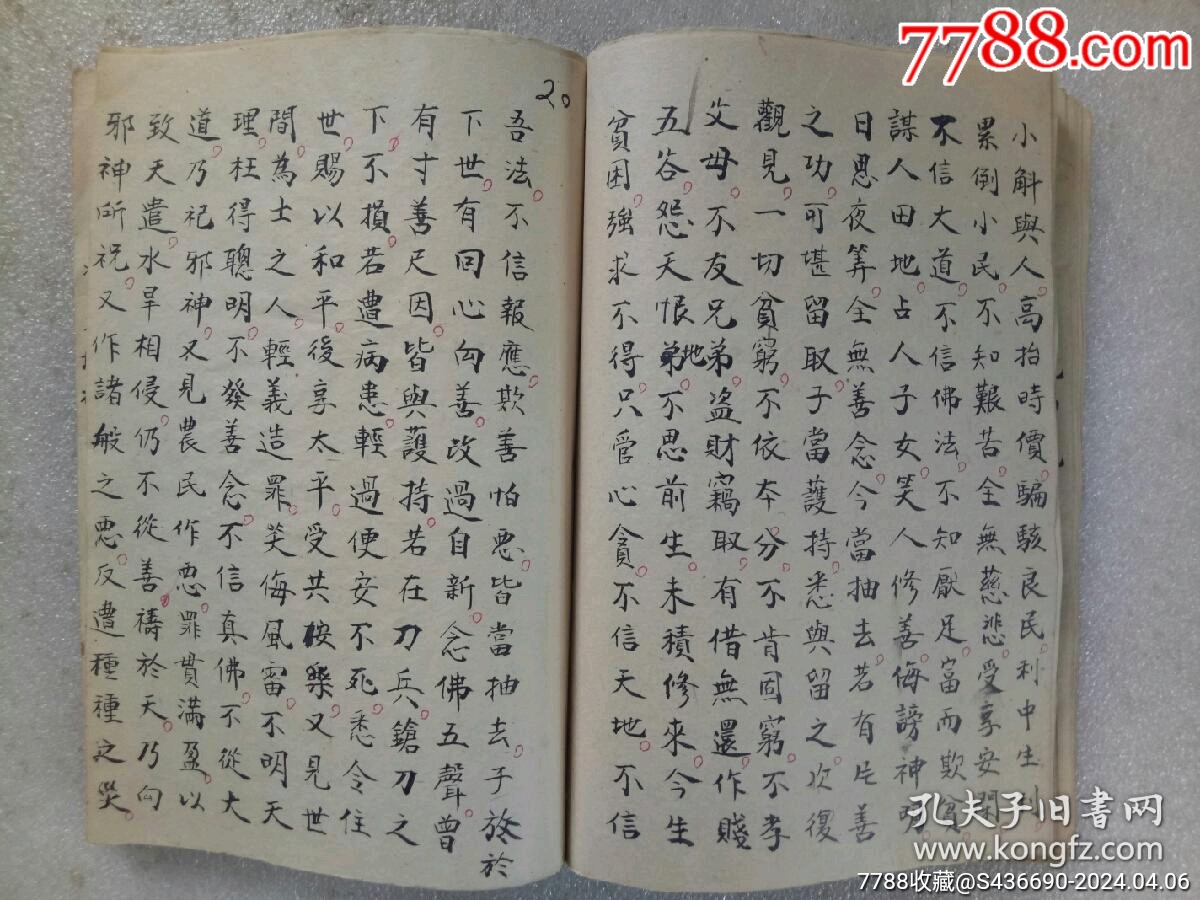 7788.com
小斛與人。高抬時價。騙駭良民。利中生利。
累倒小民。不知艱苦。全無慈悲。受享安閑。
不信大道。不信佛法。不知厭足。富而欺貧。
謀人田地。占人子女。笑人修善。侮謗神明。
日思夜筭。全無善念。今當抽去。若有片善
之功。可堪留取。子當護持。悉與留之。次復
觀見。一切貧窮。不依本分。不肯固窮。不孝
父母。不友兄弟。盜財竊取。有借無還。作賤
五谷。怨天恨地。弟不思前生未積修來。今生
貧困。強求不得。只管心貪。不信天地。不信
20
吾法。不信報應。欺善怕惡。皆當抽去。子放於
下世。有回心向善。改過自新。念佛五聲。曾
有寸善尺因。皆與護持。若在刀兵。鎗刀之
下。不損。若遭病患。輕過便安不死。悉令住
世。賜以和平。後享太平。受共桉樂。又見世
間。為士之人。輕義造罪。笑侮風雷。不明天
理。枉得聰明。不發善念。不信真佛。不從大
道。乃祀邪神。又見農民作惡。罪貫滿盈。以
致天遣。水旱相侵。仍不從善。禱於天。乃向
邪神所祝。又作諸般之惡。反遭種種之災。
孔夫子旧书网
www.kongfz.com
7788收藏@S436690-2024.04.06